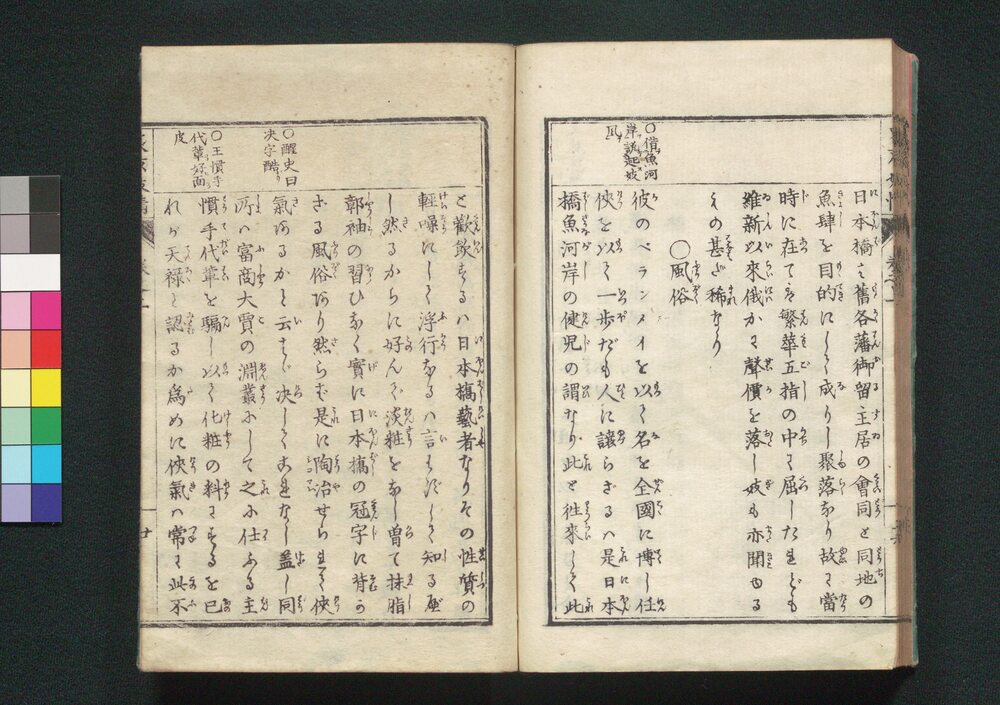 日本橋之舊各藩御留主居の會同と同地の
魚肆を目的にして成りし聚落なり故に當
時に在ては繁華五指の中に屈したれども
維新以來俄かに聲價を落し妓も亦聞ゆる
もの甚だ稀なり
〇風俗
〇借魚河
岸説起妓
風
彼のベランメイを以て名を全國に博し任
侠を以て一歩だも人に讓らざるハ是日本
橋魚河岸の健児の謂なり此と徃來して此
と歡欲するハ日本橋藝者なりその性質の
輕噪にして浮行なるハ言はずして知る可
し然るからに好んで淡粧をなし曽て抹脂
郭袖の習ひなく實に日本橋の冠字に背か
ざる風俗あり然らむ是に陶冶せられて侠
〇醒史曰
决字酷
氣あるかと云はゞ决してこれなし盖し同
所ハ富商大賈の淵叢にして之に仕ふる主
〇王慣手
代輩好面
皮
慣手代輩を騙し以て化粧の料にするを已
れが天禄と認るか爲めに侠氣ハ常に此不
廿